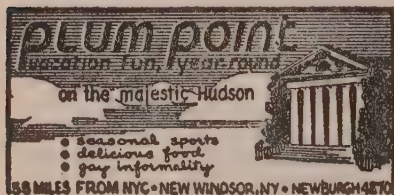 plum point
vacation fun, year round
on the majestic Hudson
• seasonal sports
• delicious food
• gay informality
MILES FROM NYC • NEW WINDSOR, NY • NEWBURGH 4270